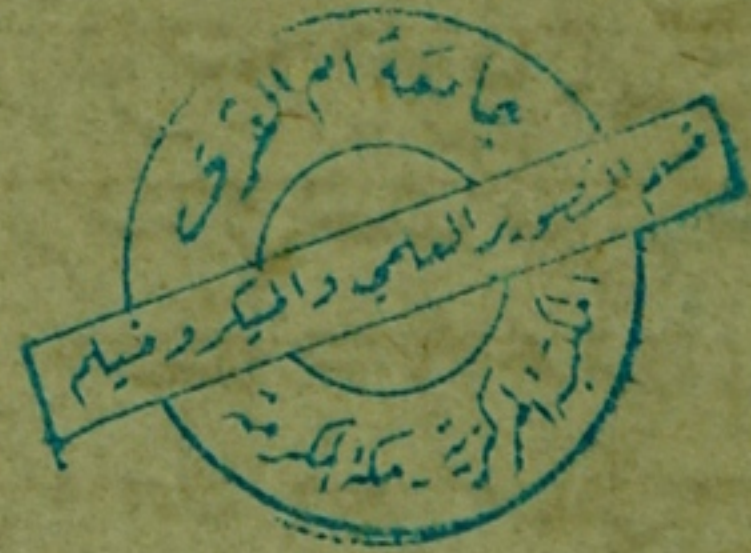 جامعة ام القرى
قسم التصوير العلمي والميكروفيلم
المكتبة المركزية - مكة المكرمة